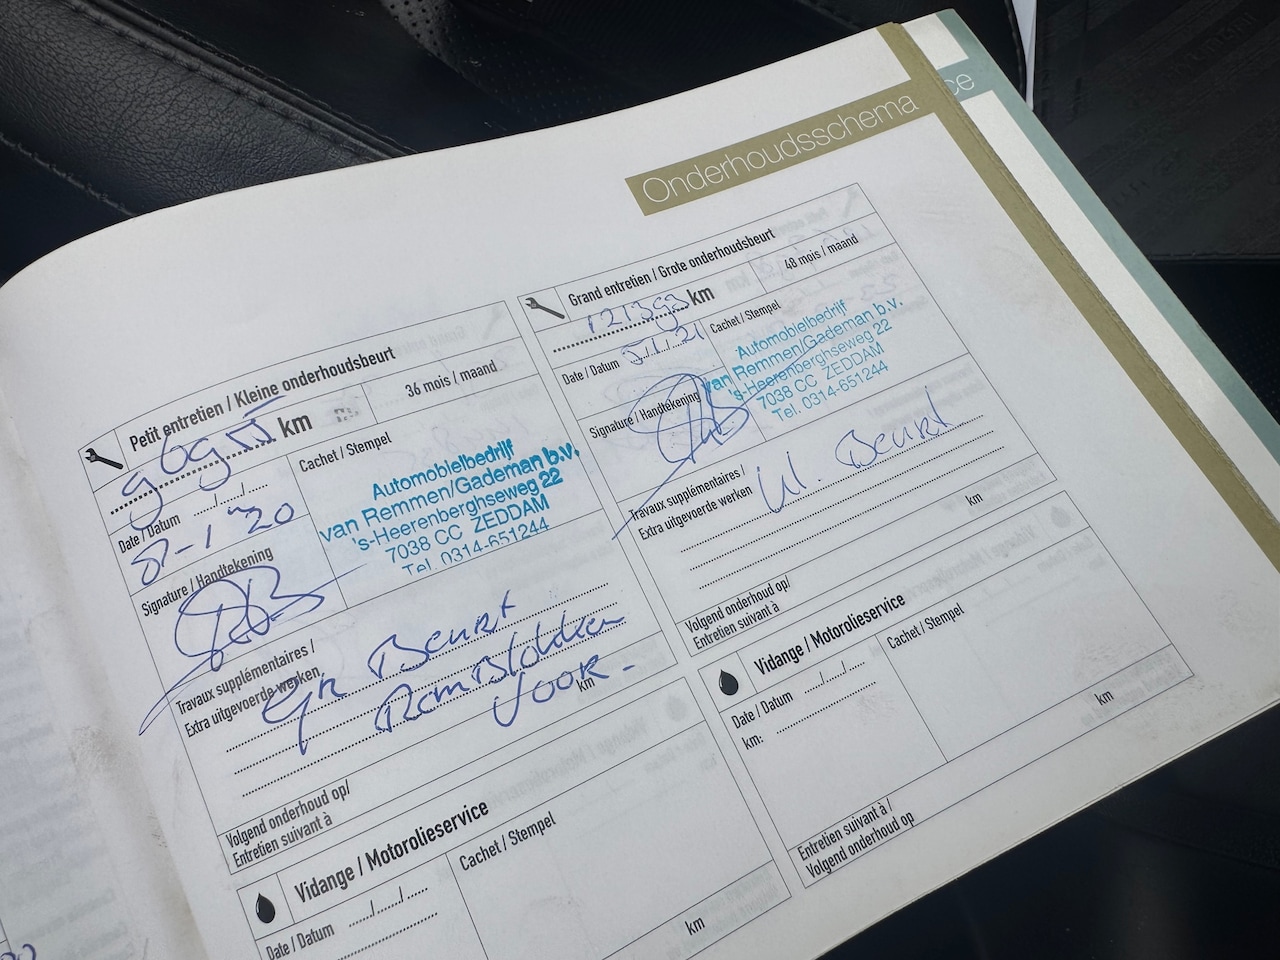 Onderhoudsschema
ce
Petit entretien / Kleine onderhoudsbeurt
km
36 mois / maand
Date / Datum ..../..../....
8-1-'20
Cachet / Stempel
Automobielbedrijf
van Remmen/Gademan b.v.
's-Heerenberghseweg 22
7038 CC ZEDDAM
Tel. 0314-651244
Signature / Handtekening
Travaux supplémentaires /
Extra uitgevoerde werken
gr Beurt
Remblokken
voor -
km
Volgend onderhoud op/
Entretien suivant à
Vidange / Motorolieservice
Date / Datum ..../..../....
Cachet / Stempel
km
Grand entretien / Grote onderhoudsbeurt
121393 km
48 mois / maand
Date / Datum 5/1/21
Cachet / Stempel
Automobielbedrijf
van Remmen/Gademan b.v.
's-Heerenberghseweg 22
7038 CC ZEDDAM
Tel. 0314-651244
Signature / Handtekening
Travaux supplémentaires /
Extra uitgevoerde werken
Beurt
km
Volgend onderhoud op/
Entretien suivant à
Vidange / Motorolieservice
Date / Datum ..../..../....
km:
Cachet / Stempel
km
Entretien suivant à /
Volgend onderhoud op